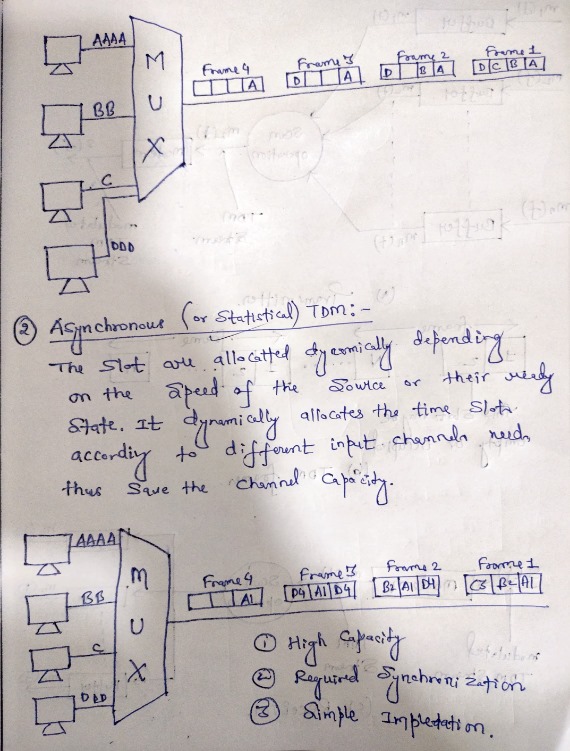 AAAA
BB
C
DDD
M
U
X
Frame 4 Frame 3 Frame 2 Frame 1
A D A D B A D C B A
② Asynchronous (or Statistical) TDM:-
The Slot are allocatted dynamically depending
on the Speed of the Source or their ready
State. It dynamically allocates the time Slots
according to different input channels needs
thus Save the Channel Capacity.
AAAA
BB
C
DDD
M
U
X
Frame 4 Frame 3 Frame 2 Frame 1
A1 D4 A1 D4 B2 A1 D4 C3 B2 A1
① High Capacity
② Required Synchronization
③ Simple Impletation.